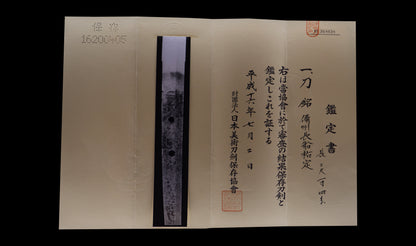 鑑定書
一、刀 銘 備州長船祐定
長 二尺
右は當協會に於て審査の結果保存刀剣と
鑑定しこれを証する
平成十六年七月二日
財団法人日本美術刀剣保存協會